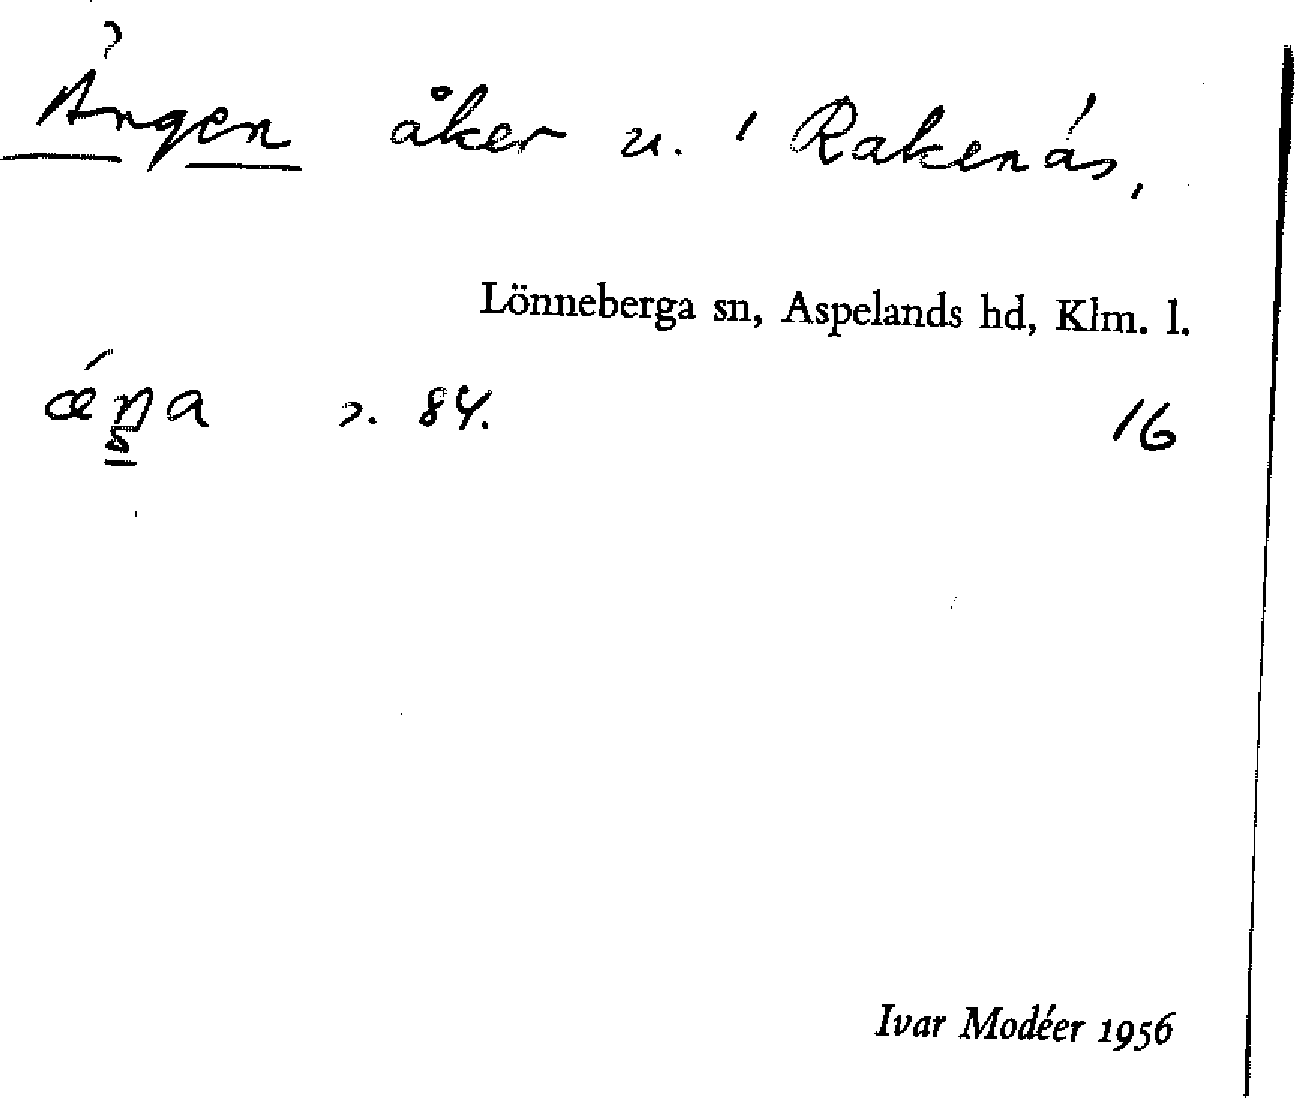 ?
Ängen åker u. ' Rakenäs,
Lönneberga sn, Aspelands hd, Klm. l.
16
Ivar Modéer 1956